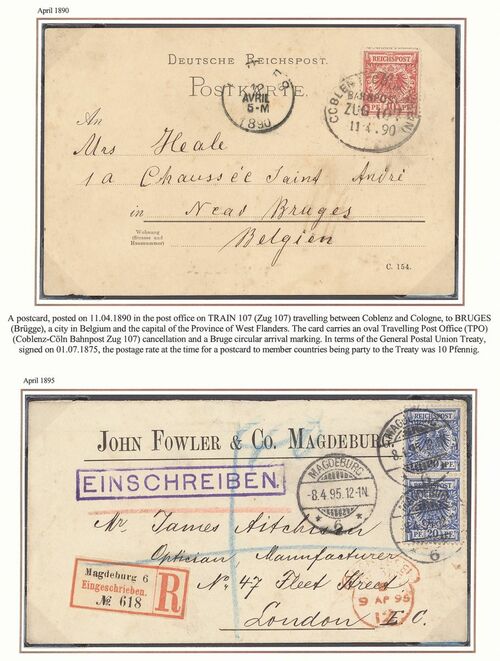 April 1890
DEUTSCHE REICHSPOST.
POSTKARTE
REICHSPOST
12
AVRIL
5-M
1890
BAHNPOST
ZUG 107
11.4.90
An
Mrs Heale
1a Chaussée Saint André
in Near Bruges
Wohnung
(Strasse und
Hausnummer)
Belgien
C. 154.
A postcard, posted on 11.04.1890 in the post office on TRAIN 107 (Zug 107) travelling between Coblenz and Cologne, to BRUGES
(Brügge), a city in Belgium and the capital of the Province of West Flanders. The card carries an oval Travelling Post Office (TPO)
(Coblenz-Cöln Bahnpost Zug 107) cancellation and a Bruge circular arrival marking. In terms of the General Postal Union Treaty,
signed on 01.07.1875, the postage rate at the time for a postcard to member countries being party to the Treaty was 10 Pfennig.
April 1895
JOHN FOWLER & CO. MAGDEBURG
REICHSPOST
MAGDEBURG
8.4.95
EINSCHREIBEN.
MAGDEBURG
-8.4.95.12-1N.
* 6 *
PF. 20 PF.
Mr James Aitchison
Optician, Manufacturer
No. 47 Fleet Street
London E.C.
Magdeburg 6
Eingeschrieben.
№ 618
R
9 AP 95